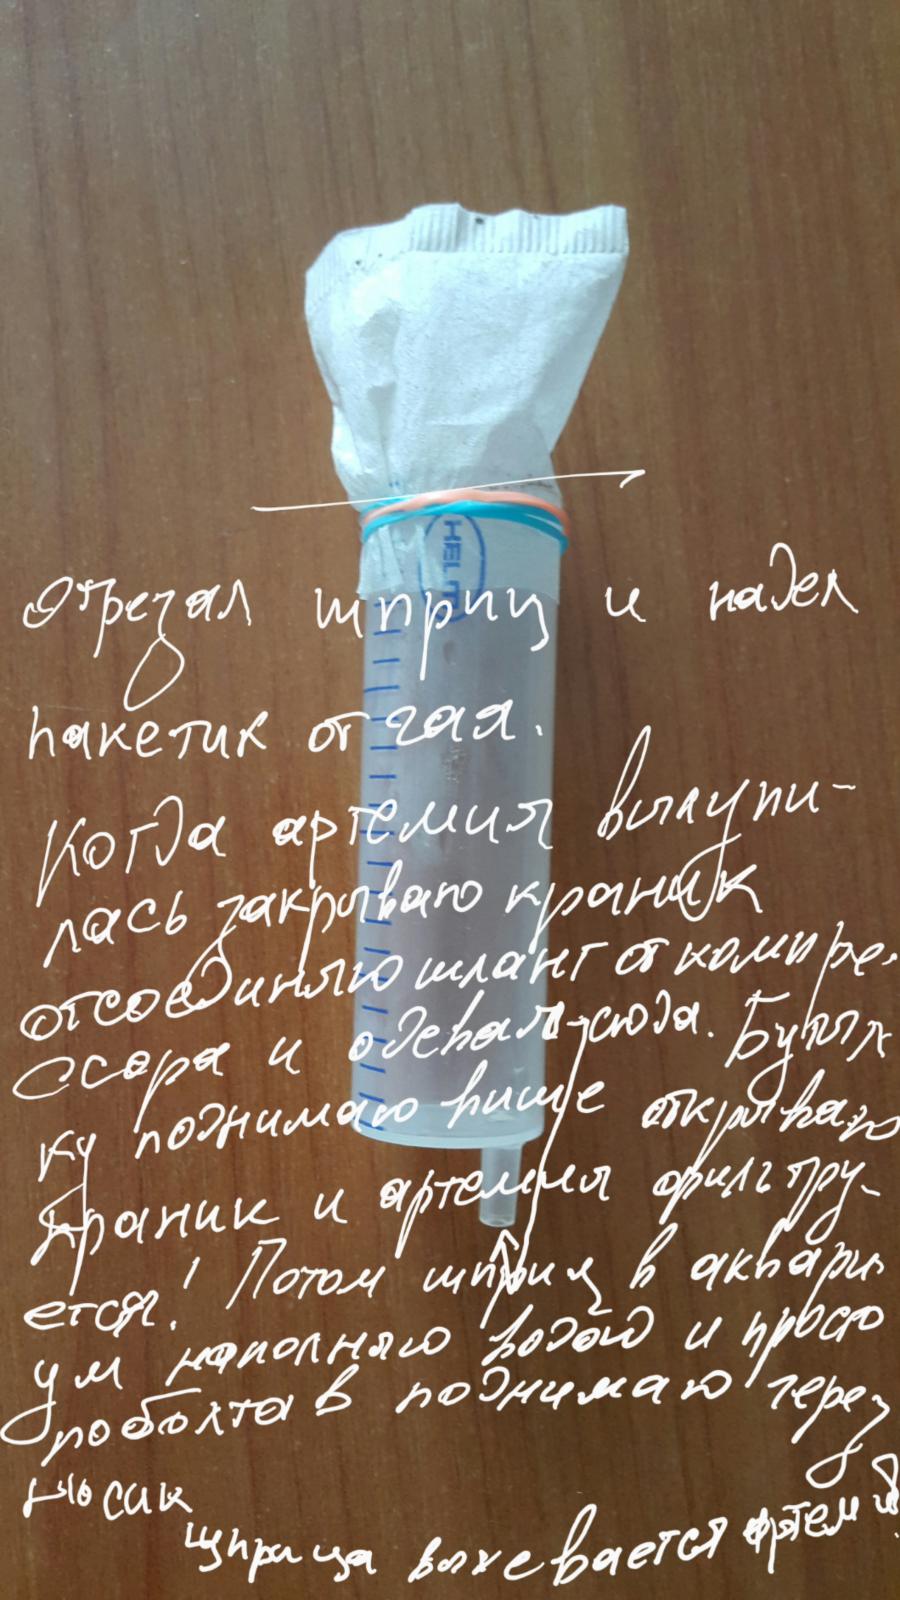 HELM
Отрезал шприц и надел
пакетик от чая.
Когда артемия вылупи-
лась закрываю краник
отсоединяю шланг от компре-
ссора и одеваю сюда. Бутыл
ку поднимаю выше открываю
краник и артемия фильтру-
ется! Потом шприц в аквари
ум наполняю водой и просто
поболтав поднимаю через
носик
шприца выливается артемия